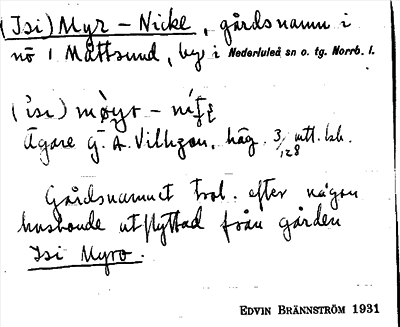 (Isi) Myr – Nicke, gårdsnamn i
nö 1 Måttsund, by i Nederluleå sn o. tg. Norrb. l.
Ägare G. A. Vilhgon, häg. 3/128 mtl. sk.
Gårdsnamnet trol. efter någon
husbonde utflyttad från gården
Isi Myro.
EDVIN BRÄNNSTRÖM 1931